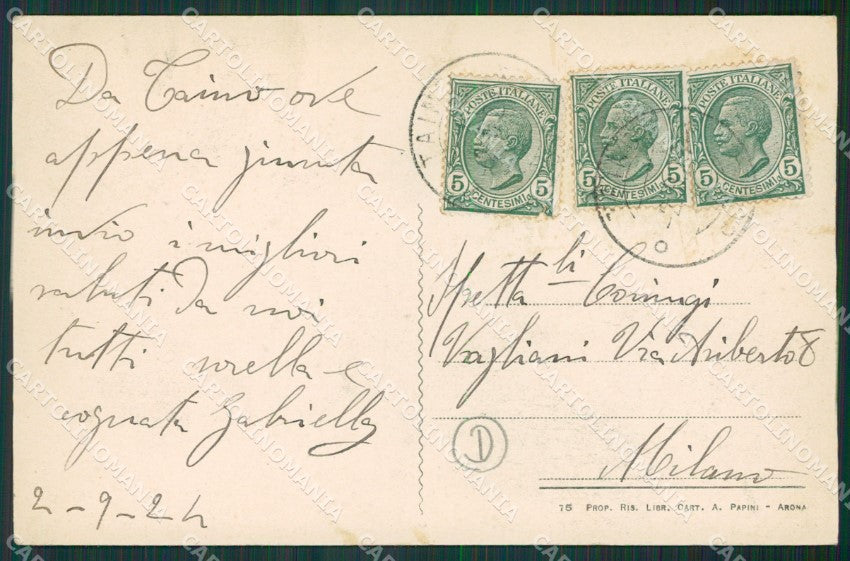 Da Taino ove
appena giunta
invio i migliori
saluti da noi
tutti sorella e
cognata Gabriella
2-9-24
POSTE ITALIANE
5 5
CENTESIMI
POSTE ITALIANE
5 5
CENTESIMI
POSTE ITALIANE
5 5
CENTESIMI
TAINO
Spetta.li Coniugi
Vagliani Via Ariberto 8
Milano
D
75 PROP. RIS. LIBR. CART. A. PAPINI - ARONA
CARTOLINOMANIA